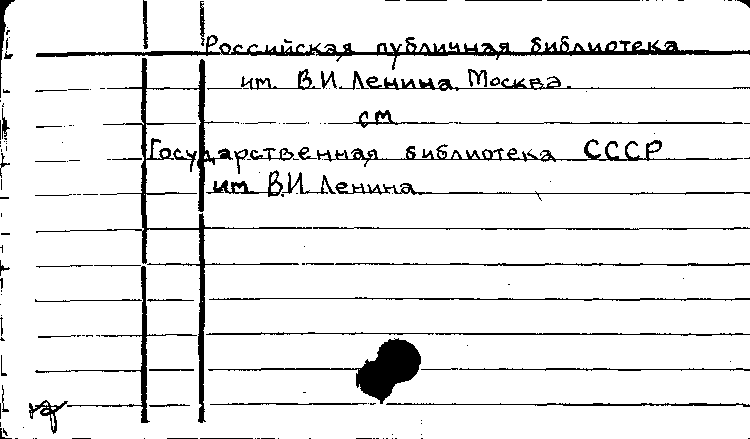 Российская публичная библиотека
им. В.И. Ленина. Москва.
см
Государственная библиотека СССР
им. В.И. Ленина